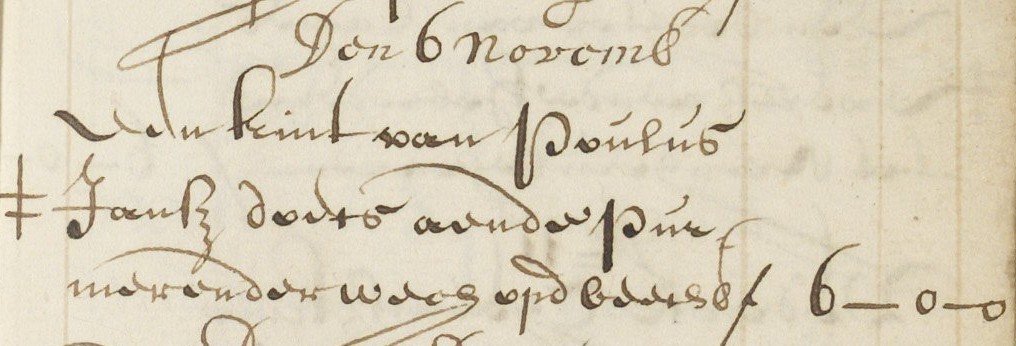 Den 6 Novemb
Een kint van Poulus
Jansz doets aende Pur
merender wech opd beets f 6 – 0 – 0